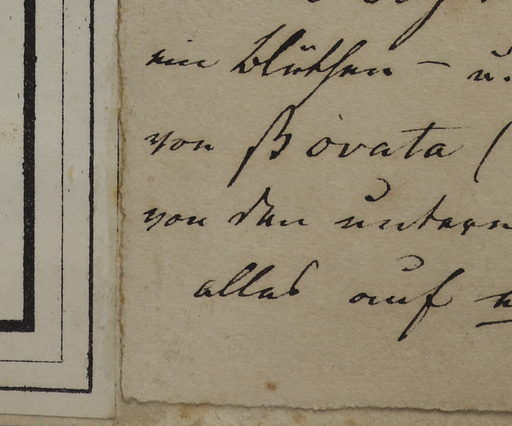 ein Blüthen - u.
von β ovata (
von den untern
alles auf